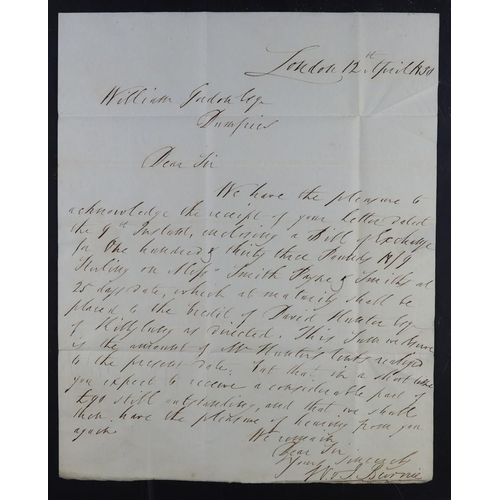 London 12th April
William Gordon Esqr
Dumfries
Dear Sir
We have the pleasure to
acknowledge the receipt of your Letter dated
the 9th Instant, enclosing a Bill of Exchange
for One hundred & thirty three Pounds
Sterling on Messrs Smith Payne & Smiths at
25 days date, which at maturity shall be
placed to the Credit of David Hunter Esqr
of as directed. This Sum
is the amount of Mr Hunter's rents realized
to the present date, but that in a short
you expect to receive a considerable part of
£90 still outstanding, and that we shall
then have the pleasure of hearing from you
again
We remain
Dear Sir
Yours Sincerely
Burnie